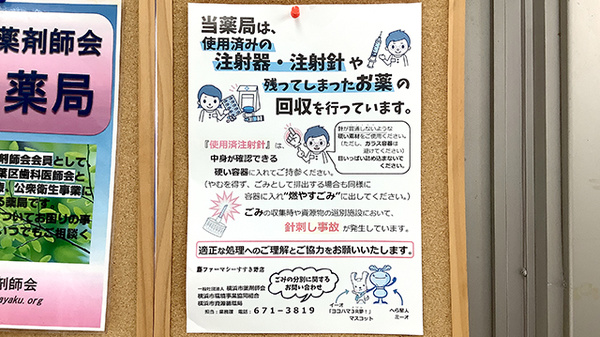 薬剤師会
薬局
剤師会会員として
葉区歯科医師と
公衆衛生事業に
る薬局です。
ついてお困りの事
いつでもご相談く
剤師会
ayaku.org
当薬局は、
使用済みの
注射器・注射針や
残ってしまったお薬の
回収を行っています。
『使用済注射針』は、
中身が確認できる
硬い容器に入れてご持参ください。
(やむを得ず、ごみとして排出する場合も同様に
容器に入れ“燃やすごみ”に出してください。)
針が貫通しないような
硬い素材をご使用ください。
(ただし、ガラス容器は
避けてください)
目いっぱい詰め込まないで
ください。
ごみの収集時や資源物の選別施設において、
針刺し事故が発生しています。
適正な処理へのご理解とご協力をお願いいたします。
薬ファーマシーすすき野店
一般社団法人 横浜市薬剤師会
横浜市環境事業協同組合
横浜市資源循環局
ごみの分別に関する
お問い合わせ
担当:業務課 電話:671-3819
イーオ
「ヨコハマ3R夢!」
マスコット
へら星人
ミーオ